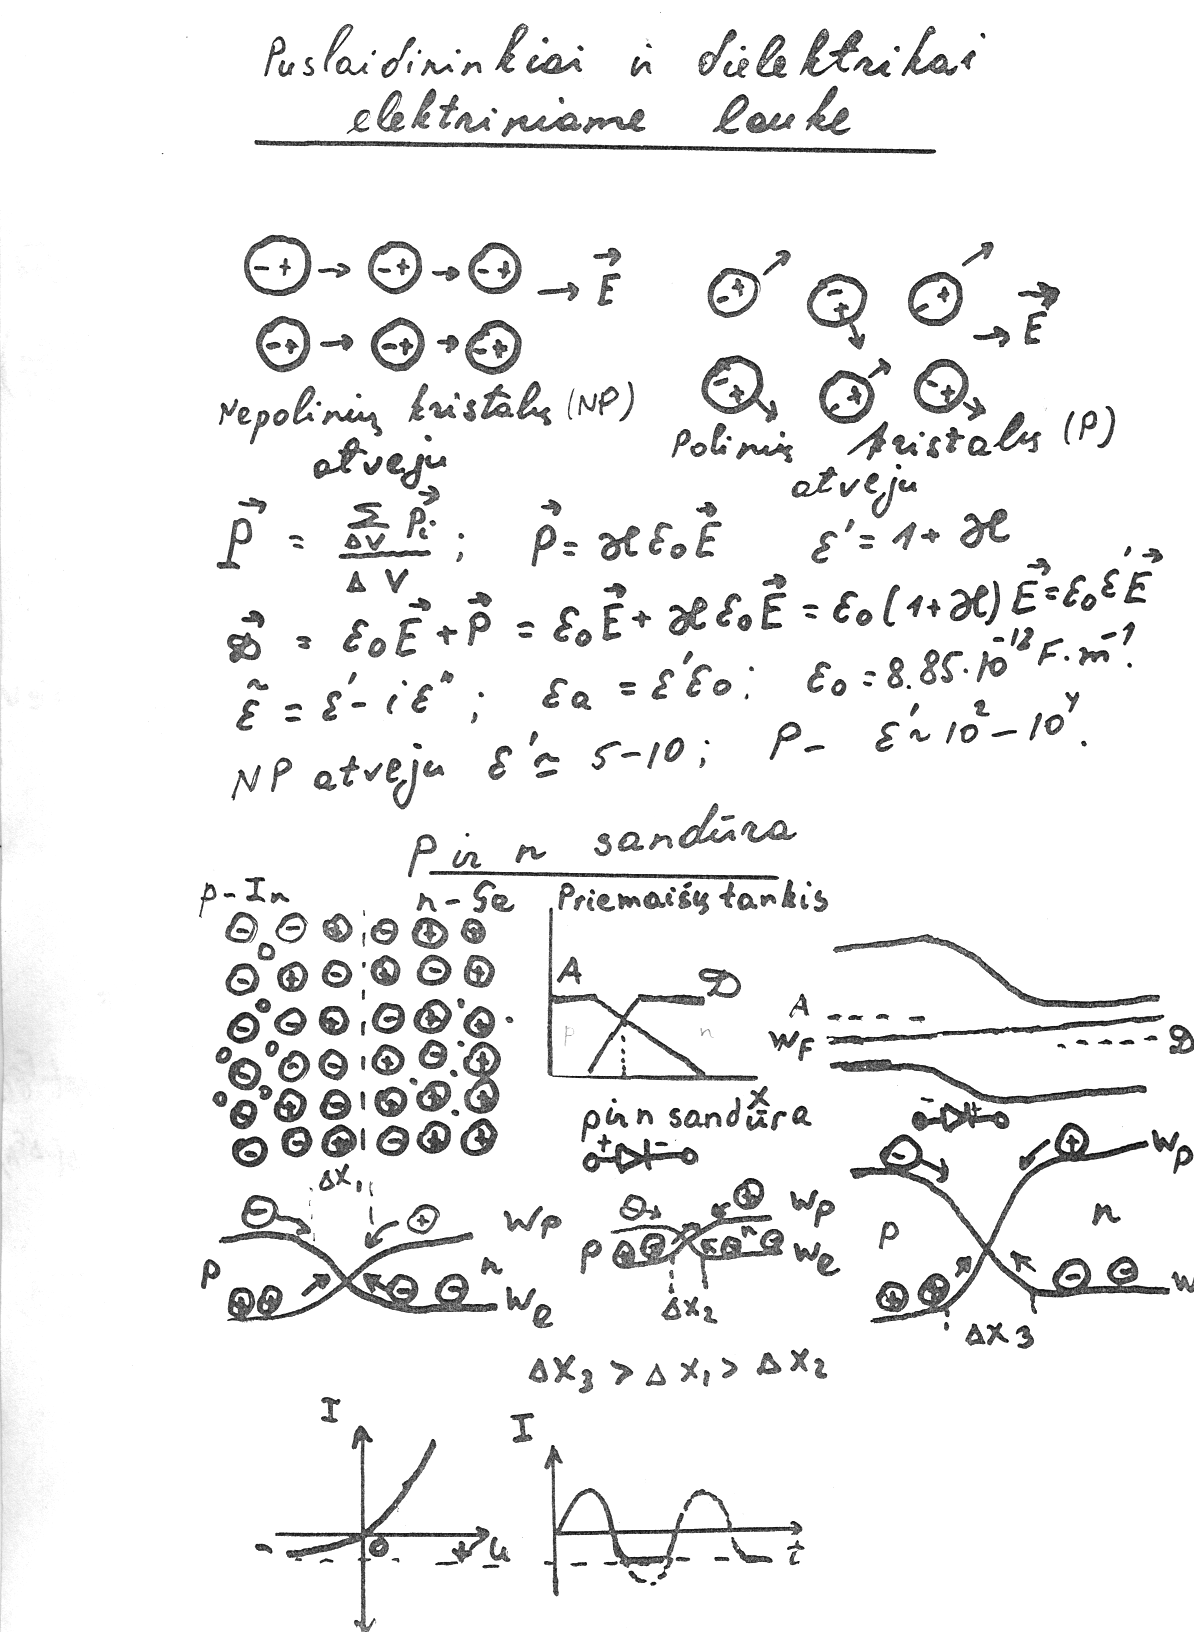 Puslaidininkiai ir dielektrikai
elektriniame lauke
- + → - + → - + → E⃗
- + → - + → - + → E⃗
Nepolinių kristalų (NP)
atveju
Polinių kristalų (P)
atveju
P⃗ = Σ_ΔV P⃗i / ΔV ; P⃗ = ϰ ε₀ E⃗ ε' = 1 + ϰ
D⃗ = ε₀E⃗ + P⃗ = ε₀E⃗ + ϰ ε₀E⃗ = ε₀(1+ϰ)E⃗ = ε₀ε'E⃗
ε̃ = ε' - iε" ; εa = ε'ε₀ ; ε₀ = 8.85·10⁻¹² F·m⁻¹.
NP atveju ε' ≃ 5-10 ; P - ε' ~ 10² - 10⁴.
p ir n sandūra
p-In n-Ge
Priemaišų tankis
A D
p n
x
A
WF
D
p ir n sandūra
+ -
- +
Δx₁
Wp
p n
We
Wp
p n
We
Δx₂
Wp
p n
W
Δx₃
Δx₃ > Δx₁ > Δx₂
I
- 0 + U
I
t